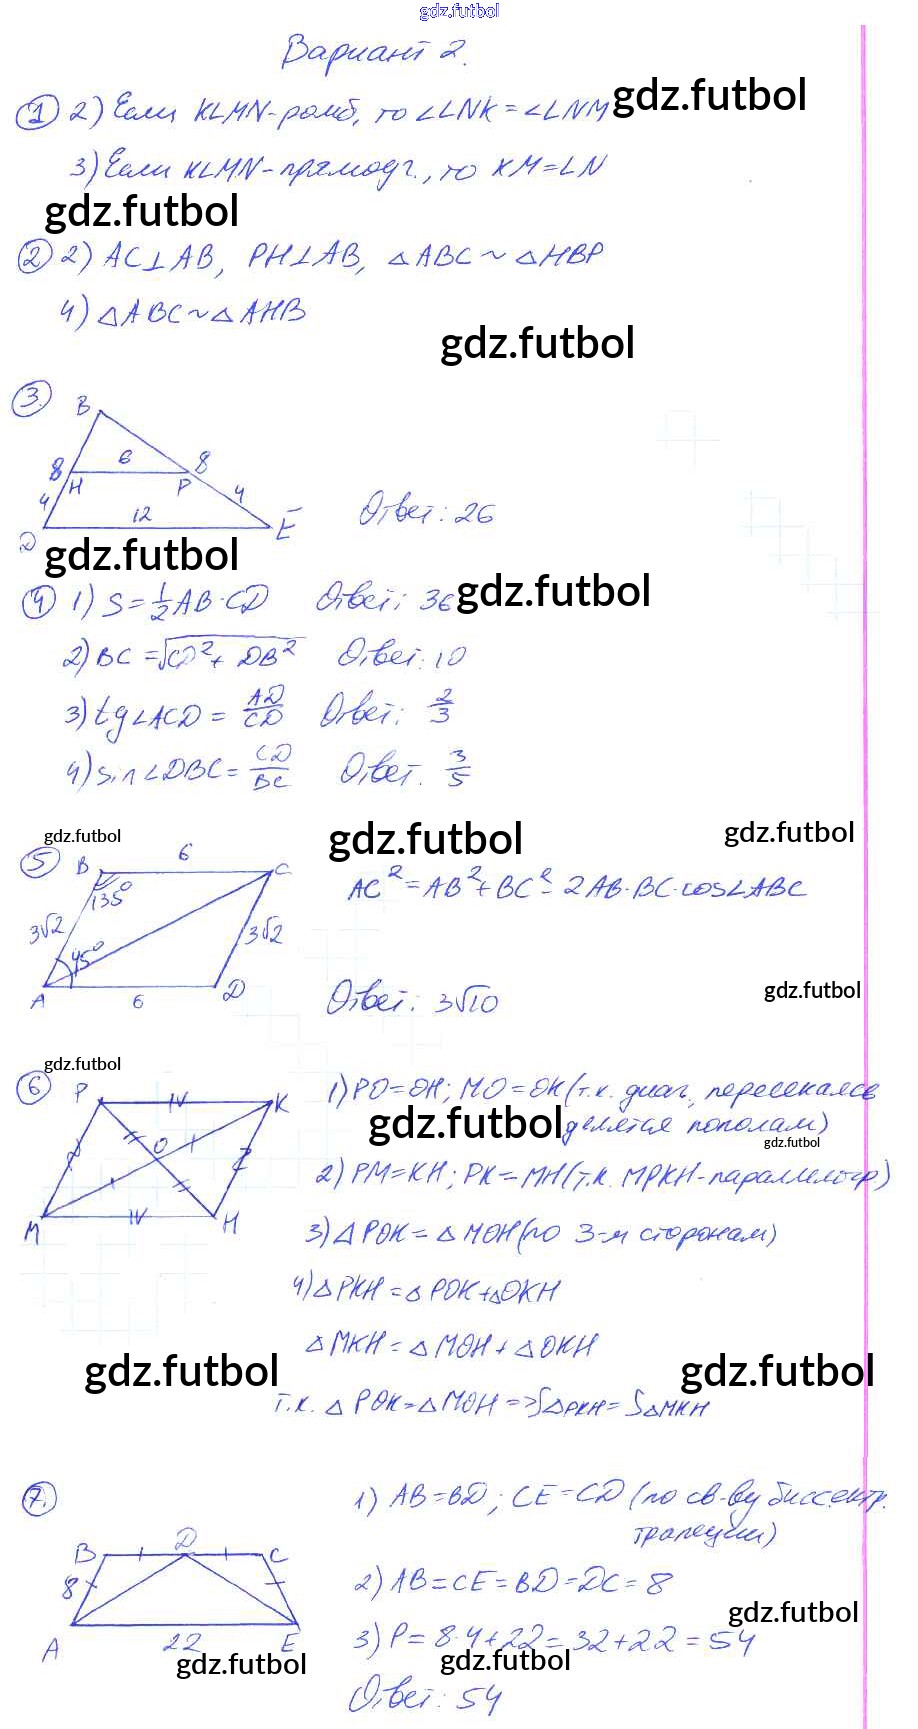 gdz.futbol
Вариант 2.
1 2) Если KLMN-ромб, то ∠LNK = ∠LNM gdz.futbol
3) Если KLMN-прямоуг., то KM=LN
gdz.futbol
2 2) AC⊥AB, PH⊥AB, △ABC ~ △HBP
4) △ABC ~ △AHB
gdz.futbol
3.
B
8 6 8
H P
4 4
12
D E
Ответ: 26
gdz.futbol
4 1) S = 1/2 AB·CD Ответ: 36 gdz.futbol
2) BC = √CD²+DB² Ответ: 10
3) tg∠ACD = AD/CD Ответ: 2/3
4) sin∠DBC = CD/BC Ответ. 3/5
gdz.futbol gdz.futbol gdz.futbol
5 B 6 C
135°
3√2 3√2
45°
A 6 D
AC² = AB² + BC² - 2AB·BC·cos∠ABC
gdz.futbol
Ответ: 3√10
gdz.futbol
6 P K
O
M H
1) PO=OH; MO=OK (т.к. диаг., пересекаясь
gdz.futbol делятся пополам)
gdz.futbol
2) PM=KH; PK=MH (т.к. MPKH-параллелогр)
3) △POK = △MOH (по 3-м сторонам)
4) △PKH = △POK+△OKH
△MKH = △MOH + △OKH
gdz.futbol gdz.futbol
т.к. △POK=△MOH => S△PKH = S△MKH
7. B D C
8
A 22 E
1) AB=BD; CE=CD (по св-ву биссектр.
трапеции)
2) AB=CE=BD=DC=8
gdz.futbol
3) P=8·4+22=32+22=54
gdz.futbol gdz.futbol
Ответ: 54